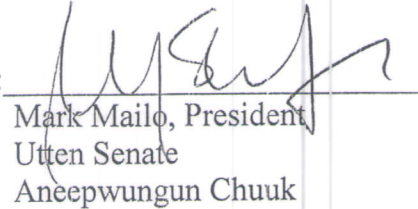 Mark Mailo, President
Utten Senate
Aneepwungun Chuuk